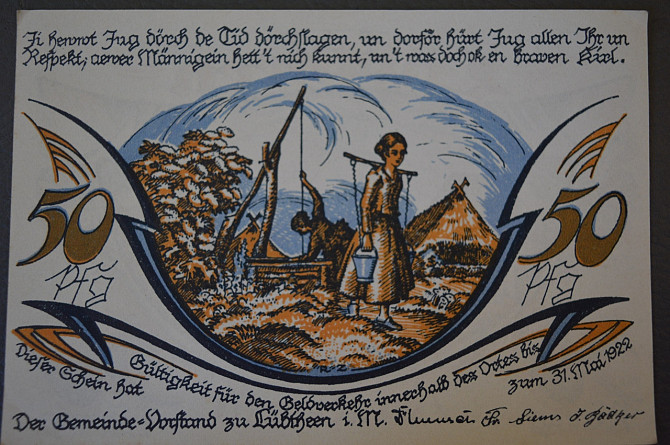 Ji hewwt Jug dörch de Tid dörchslagen, un dorför hürt Jug allen Ihr un
Respekt; aewer Männigein hett't nich kunnt, un't was doch ok en braven Kirl.
50 Pfg
50 Pfg
R-Z.
Dieser Schein hat Gültigkeit für den Geldverkehr innerhalb des Ortes bis zum 31. Mai 1922
Der Gemeinde-Vorstand zu Lübtheen i. M.